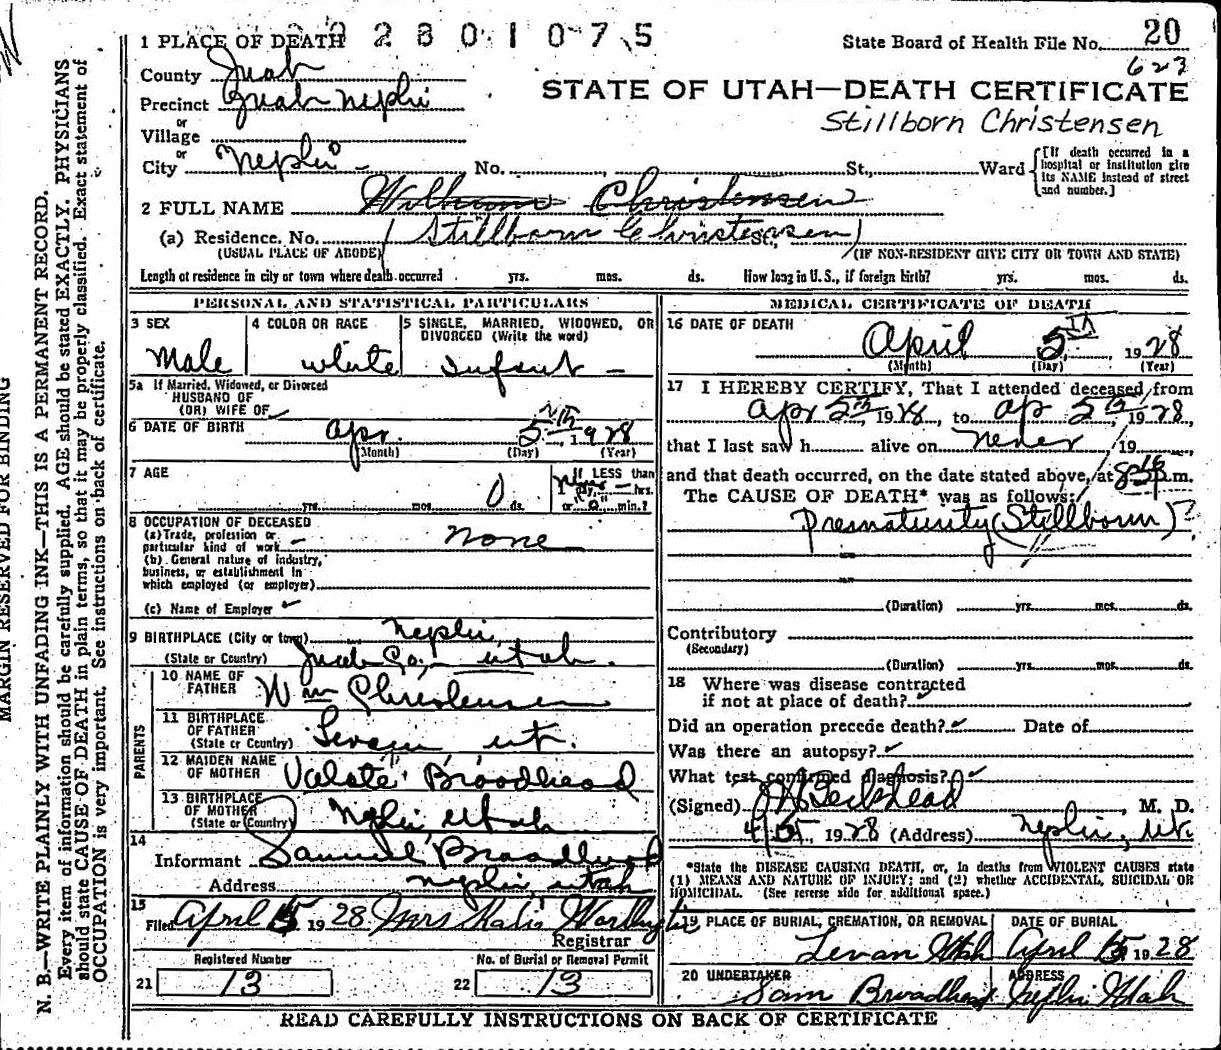 2 8 0 1 0 7 5
1 PLACE OF DEATH
State Board of Health File No. 20
623
County Juab
Precinct Juab Nephi
STATE OF UTAH—DEATH CERTIFICATE
Stillborn Christensen
or
Village
or
City Nephi No. St., Ward
[If death occurred in a hospital or institution give its NAME instead of street and number.]
2 FULL NAME Christensen
(a) Residence. No. (Stillborn Christensen)
(USUAL PLACE OF ABODE) (IF NON-RESIDENT GIVE CITY OR TOWN AND STATE)
Length of residence in city or town where death occurred yrs. mos. ds. How long in U. S., if foreign birth? yrs. mos. ds.
PERSONAL AND STATISTICAL PARTICULARS
3 SEX
Male
4 COLOR OR RACE
white
5 SINGLE, MARRIED, WIDOWED, OR DIVORCED (Write the word)
infant
5a If Married, Widowed, or Divorced
HUSBAND OF
(OR) WIFE OF
6 DATE OF BIRTH Apr. 5th, 1928
(Month) (Day) (Year)
7 AGE
yrs. mos. 0 ds.
If LESS than
1 day, hrs.
or min.?
8 OCCUPATION OF DECEASED
(a) Trade, profession or
particular kind of work None
(b) General nature of industry,
business, or establishment in
which employed (or employer)
(c) Name of Employer
9 BIRTHPLACE (City or town) Nephi,
(State or Country) Juab Co., Utah.
PARENTS
10 NAME OF
FATHER Wm Christensen
11 BIRTHPLACE
OF FATHER
(State or Country) Levan Ut.
12 MAIDEN NAME
OF MOTHER Broadhead
13 BIRTHPLACE
OF MOTHER
(State or Country) Nephi, Utah
14
Informant Samuel Broadhead
Address Nephi, Utah
15
Filed April 5 1928 Mrs
Registrar
Registered Number
21 13
No. of Burial or Removal Permit
22 13
MEDICAL CERTIFICATE OF DEATH
16 DATE OF DEATH
April 5th, 1928
(Month) (Day) (Year)
17 I HEREBY CERTIFY, That I attended deceased from
Apr 5th, 1928, to Ap 5th, 1928,
that I last saw h alive on never 19
and that death occurred, on the date stated above, at m.
The CAUSE OF DEATH* was as follows:
Prematurity (Stillborn)?
(Duration) yrs. mos. ds.
Contributory
(Secondary)
(Duration) yrs. mos. ds.
18 Where was disease contracted
if not at place of death?
Did an operation precede death? Date of
Was there an autopsy?
What test confirmed diagnosis?
(Signed) Beckstead, M. D.
4/5, 1928 (Address) Nephi, Ut.
*State the DISEASE CAUSING DEATH, or, in deaths from VIOLENT CAUSES state
(1) MEANS AND NATURE OF INJURY; and (2) whether ACCIDENTAL, SUICIDAL OR
HOMICIDAL. (See reverse side for additional space.)
19 PLACE OF BURIAL, CREMATION, OR REMOVAL
Levan Utah
DATE OF BURIAL
April 5 1928
20 UNDERTAKER
Sam Broadhead
ADDRESS
Nephi Utah
READ CAREFULLY INSTRUCTIONS ON BACK OF CERTIFICATE
MARGIN RESERVED FOR BINDING
N. B.—WRITE PLAINLY WITH UNFADING INK—THIS IS A PERMANENT RECORD.
Every item of information should be carefully supplied. AGE should be stated EXACTLY. PHYSICIANS
should state CAUSE OF DEATH in plain terms, so that it may be properly classified. Exact statement of
OCCUPATION is very important. See instructions on back of certificate.